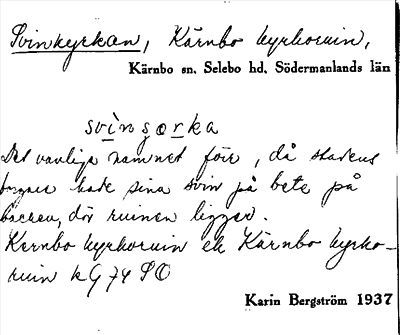 Svinkyrkan, Kärnbo kyrkoruin,
Kärnbo sn. Selebo hd. Södermanlands län
svinsçorka
Det vanliga namnet förr, då stadens
borgare hade sina svin på bete på
backen, där ruinen ligger.
Kernbo kyrkoruin el. Kärnbo kyrko-
ruin kG 74 SO
Karin Bergström 1937